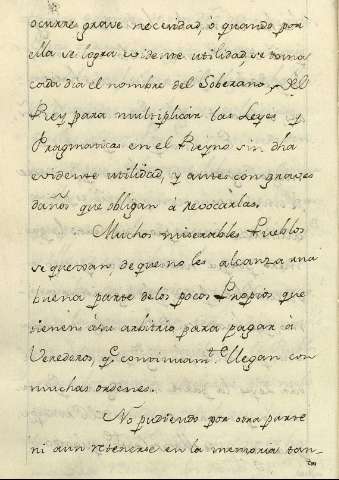 ocurre grave necesidad, ó quando por
ella se logra evidente utilidad, se toma
cada dia el nombre del Soberano, y del
Rey para multiplicar las Leyes y
Pragmaticas en el Reyno sin dha
evidente utilidad, y antes con graves
daños que obligan á revocarlas.
Muchos miserables Pueblos
se quexan de que no les alcanza una
buena parte delos pocos Propios que
tienen ásu arbitrio para pagar á
Verederos, q.e continuam.te llegan con
muchas ordenes.
No pudiendo por otra parte
ni aun retenerse en la memoria tan-